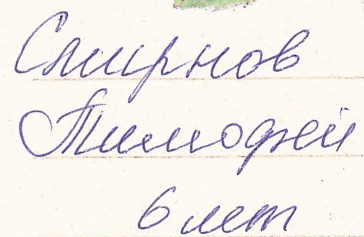 Смирнов
Тимофей
6 лет